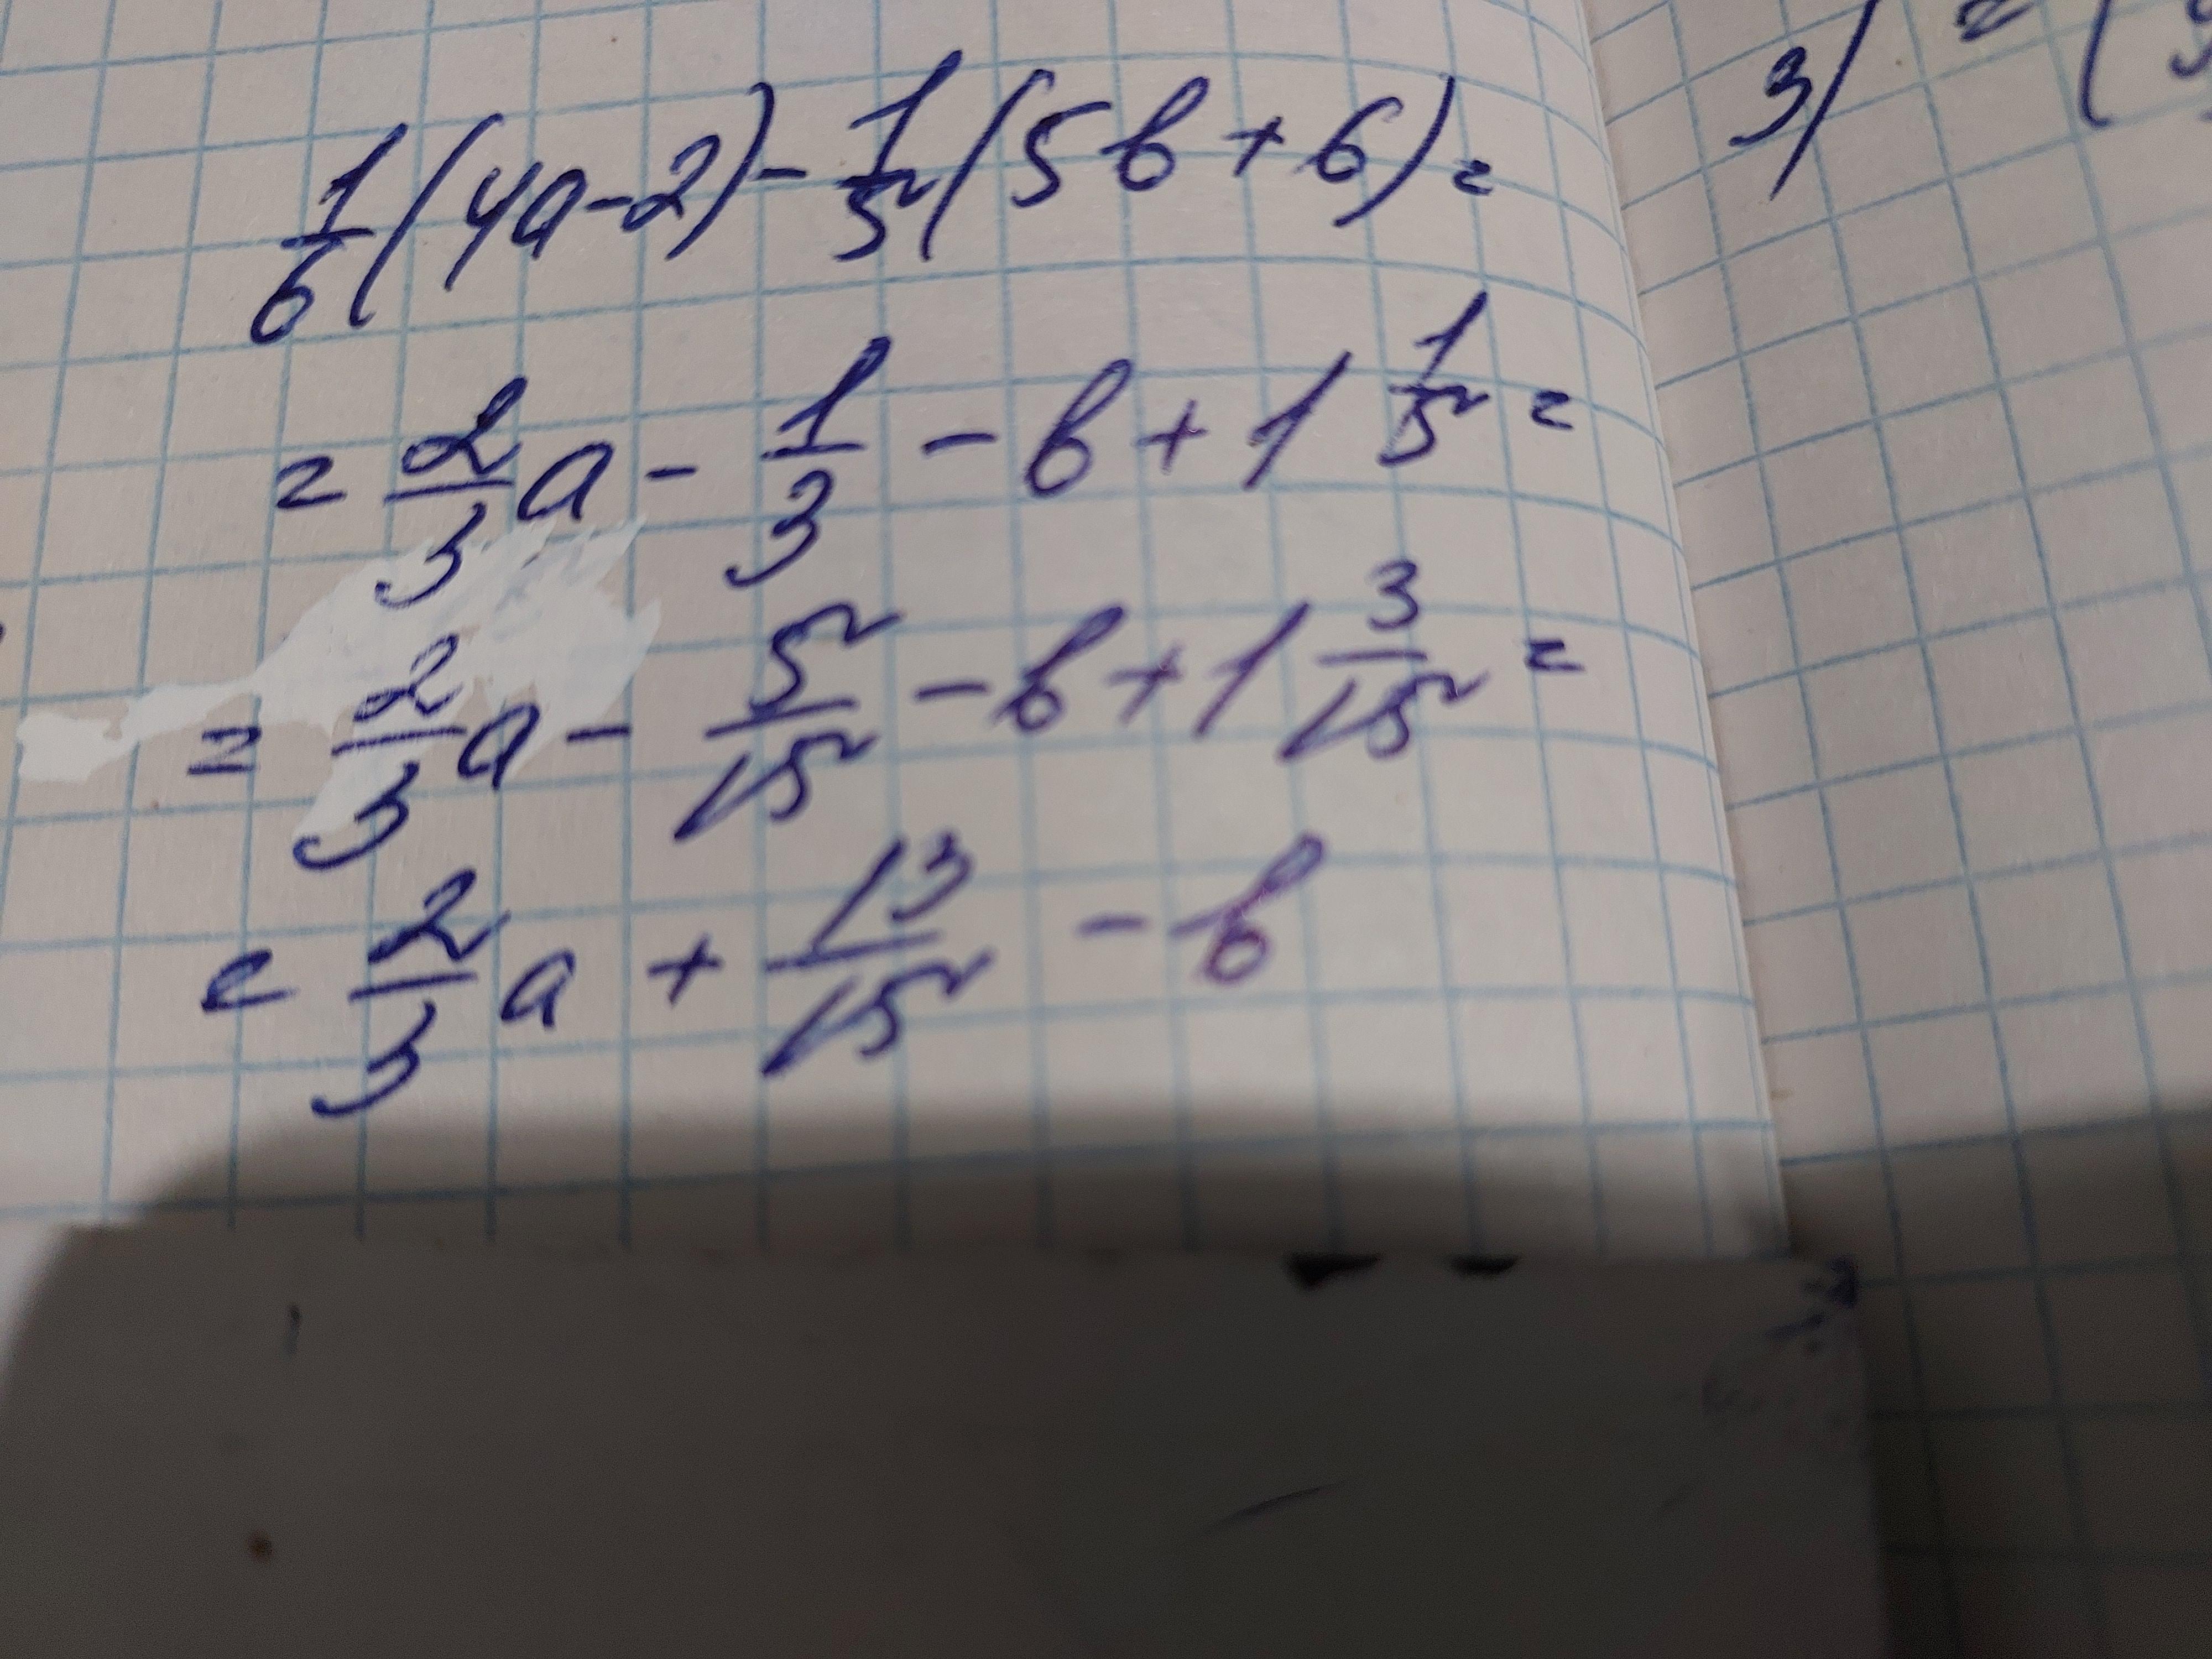 1/6(4a-2)-1/5(5в+6)=
=2/3a-1/3-в+1 1/5=
=2/3a-5/15-в+1 3/15=
=2/3a+13/15-в
3) =(